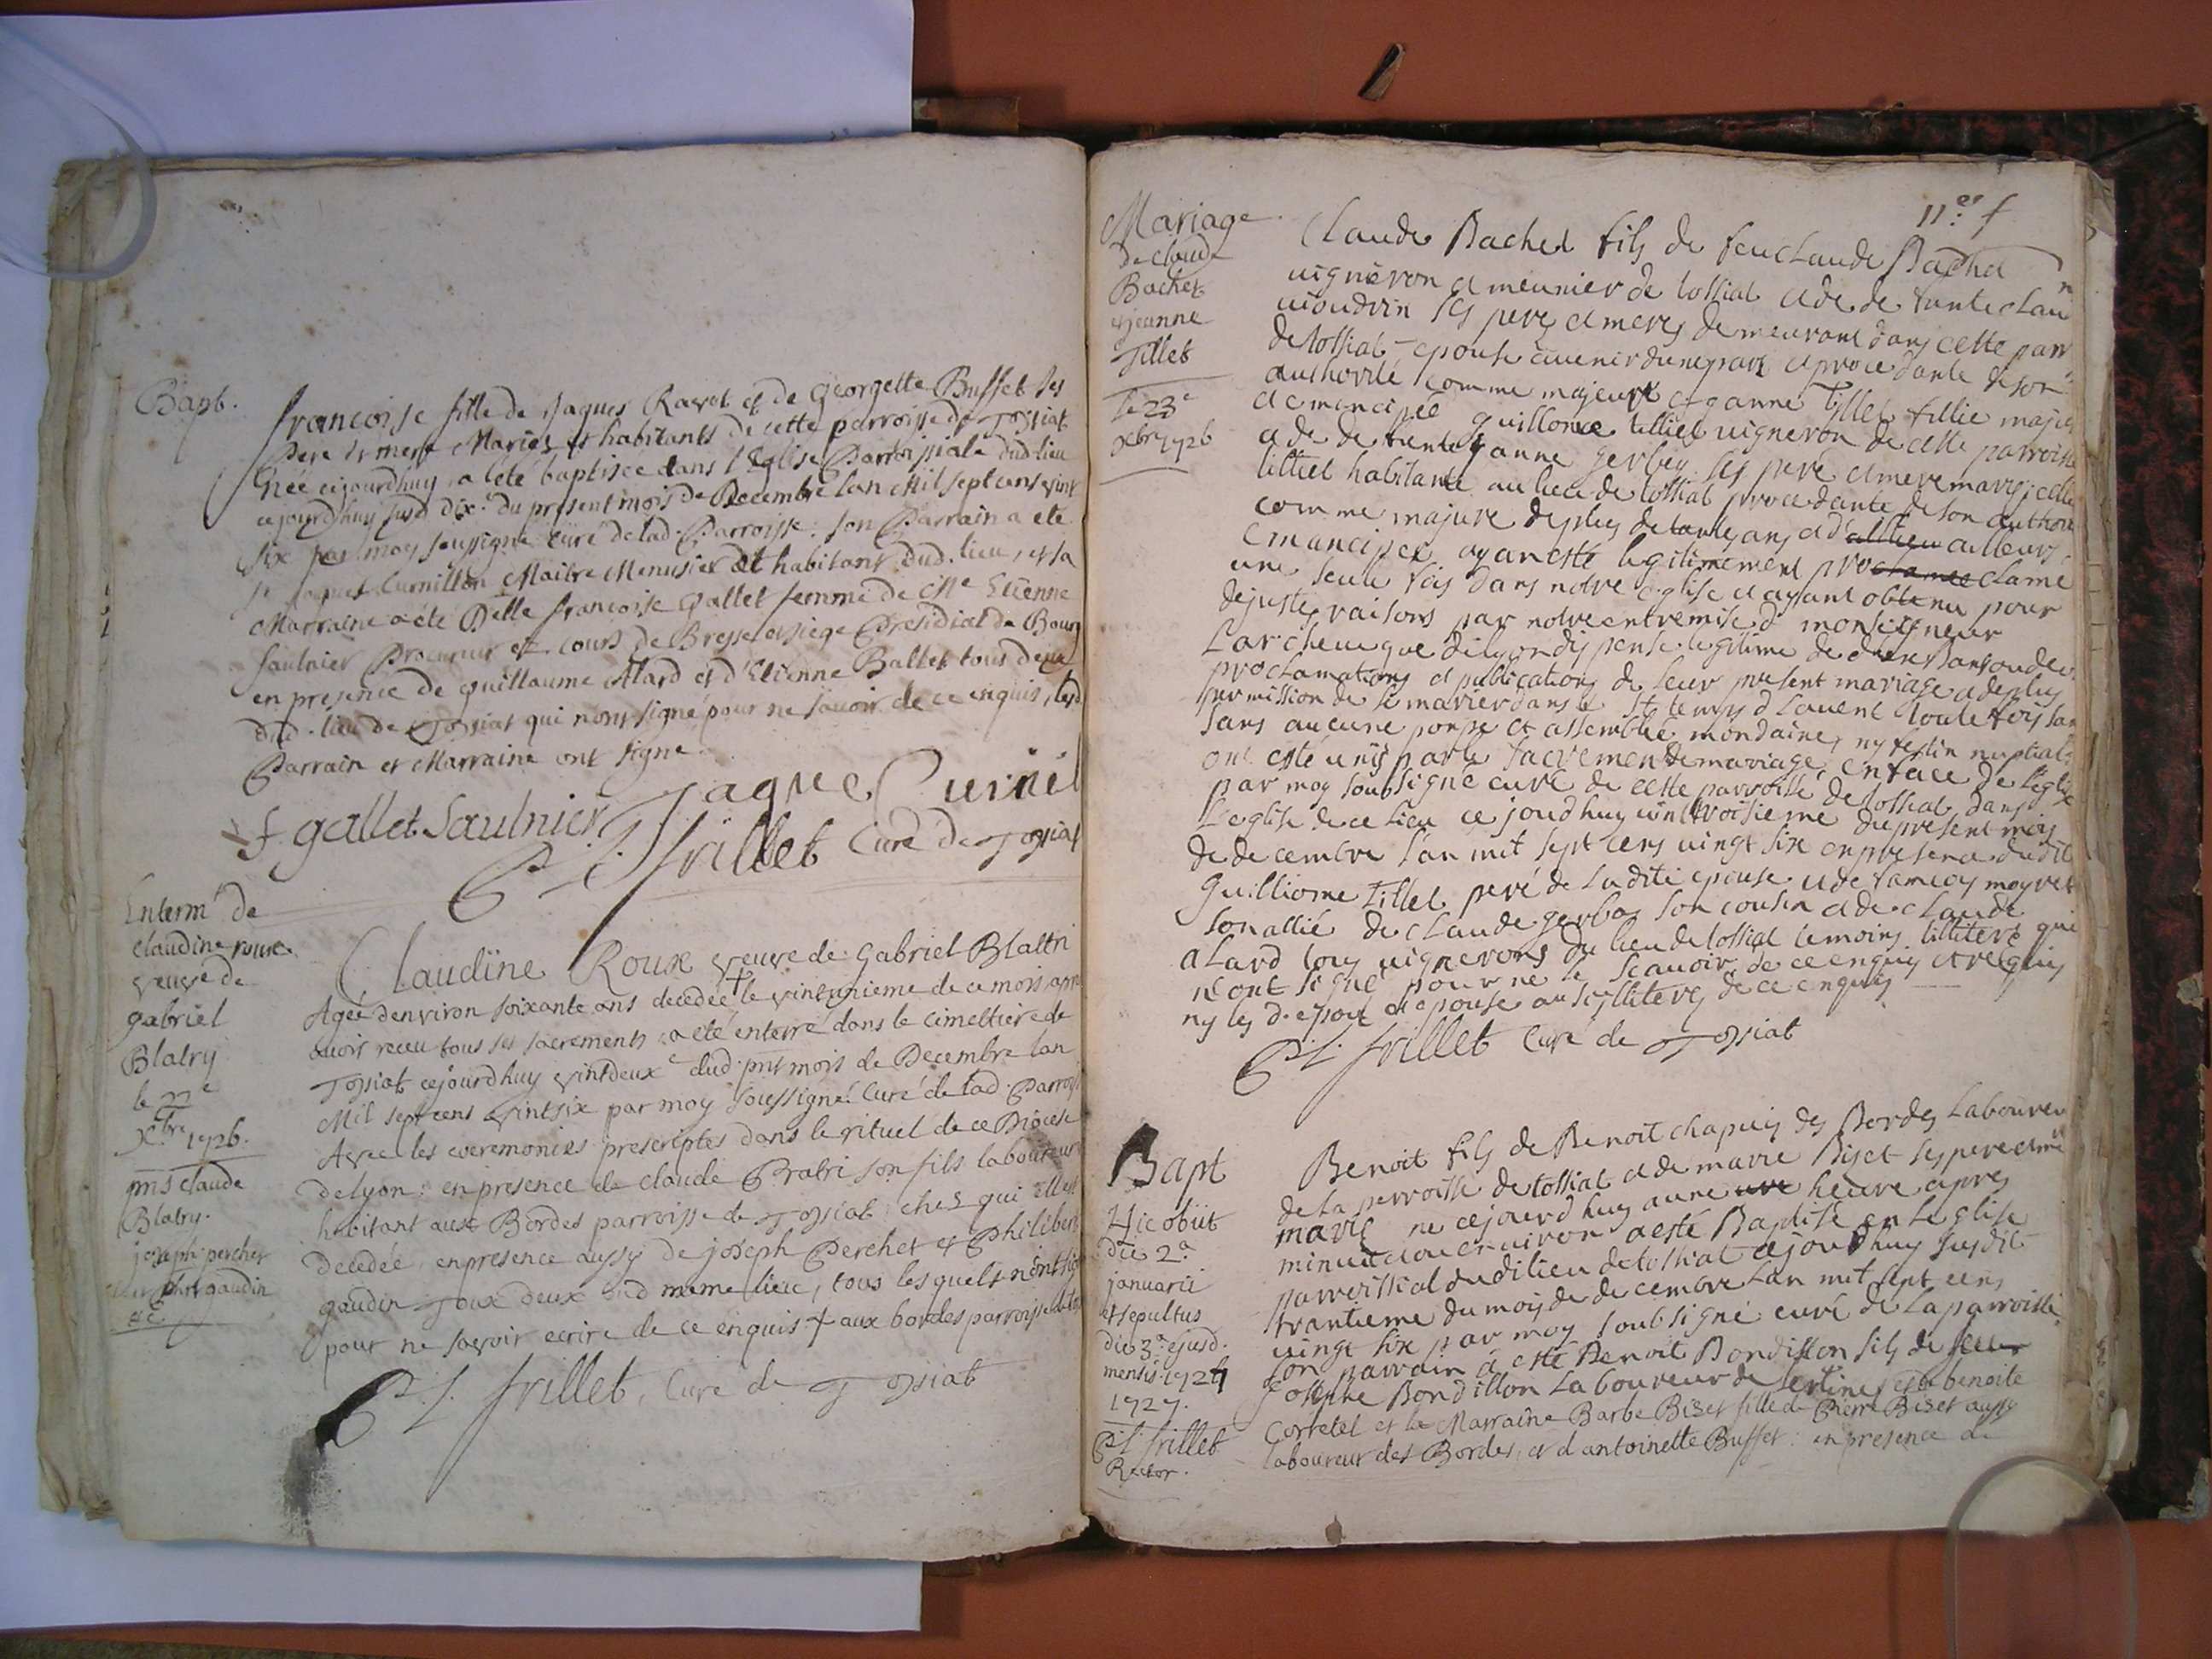 Bapt.
françoise fille de Jaques Ravet et de Georgette Buffet ses
Pere et mere Mariés et habitants de cette parroisse de Tossiat
Née cejourdhuy, a été baptisée dans l'Eglise Parroissiale dud. lieu
cejourdhuy susd. dix.e du present mois de Decembre lan Mil sept cens vint
six par moy soussigné Curé de lad. Parroisse. son Parrain a été
Sr Jaques Curnillon Maitre Menusier et habitant dud. lieu, et sa
Marraine a été Delle françoise Gallet femme de Me Etienne
Saulnier Procureur es cours de Bresse et siege Presidial de Bourg
en presence de Guillaume Alard et d'Etienne Ballet tous deux
dud. lieu de Tossiat qui n'ont signé pour ne savoir de ce enquis, lesd.
Parrain et Marraine ont signé.
f. gallet Saulnier Jaque Curnil
P. J. frillet Curé de Tossiat
Enterm.t de
claudine roux
veuve de
gabriel
Blatry
le 22e
Xbre 1726.
pnts claude
Blatry.
joseph perchet
phrt gaudin
&c.
Claudine Roux veuve de Gabriel Blattri
Agée denviron soixante ans decedée + le vintunieme de ce mois apre
avoir receu tous ses sacrements a été enterré dans le cimettiere de
Tossiat cejourdhuy vintdeux.e dud. pnt mois de Decembre lan
Mil sept cens vintsix par moy soussigné Curé de lad. Parroiss
Avec les ceremonies prescriptes dans le rituel de ce Diocese
de lyon: en presence de claude Bratri son fils laboureur
habitant aux Bordes parroisse de Tossiat ches qui Elle est
decedée, en presence aussy de joseph Perchet et Philibert
gaudin Toux deux dud. meme lieu, tous lesquels n'ont sig
pour ne savoir ecrire de ce enquis + aux bordes parroisse
P. J. frillet, Curé de Tossiat
11.er f
Mariage
de claude
Bachet
et jeanne
Tillet
le 23e
Xbre 1726
Claude Bachet fils de feu claude Bachet
vigneron et meunier de tossiat et de de funte clau
vioudrin ses pere et mere demeurant dans cette parr
de tossiat epouse avenir dune part et procedante de son
authorité comme majeure et ganne Tillet fillie majeu
et emancipée guillome tilliet vigneron de cette parroisse
et de de funte ganne gerbey ses pere et mere maries; celle
tilliet habitante au lieu de tossiat procedante de son author
comme majure de plus de tante ans et d'ailleurs
Emancipée ayant esté legitimement proclamé
une seule fois dans notre eglise et ayant obtenu pour
de justes raisons par notre entremise d monseigneur
Larcheveque de lyon dispense legitime de deux
proclamations et publications de leur present mariage et deplus
permission de se marier dans le st temps d lavent toute fois san
sans aucune pompe et assemblée mondaine, ny festin nuptial
ont esté unis par le sacrement de mariage en face de leglise
par moy soubsigné curé de cette parroisse de tossiat dans
Leglise de ce lieu ce jourdhuy vint troisieme du present mois
de decembre lan mil sept cens vingt six en presence dudit
Guilliome Tillet peré de ladite epouse et de francoy moyret
son allié de claude gerbaz son cousin et de claude
alard tous vignerons du lieu de tossiat temoins illiteré qui
n'ont signé pour ne le scavoir de ce enquis et requis
ny les d. epoux et epouse aussy illiterés de ce enquis
P. J. frillet Curé de Tossiat
Bapt
Hic obiit
die 2.a
januarii
et sepultus
die 3.a ejusd.
mensis 1727
1727.
P. J. frillet
Rector.
Benoit fils de Benoit chapuis des Bordes Laboureu
de la perroisse de tossiat et de marie Biset ses pere et me
mariés ne cejourd huy a une heure apres
minuit ou environ a esté Baptisé en Leglise
parroissial dudi lieu de tossiat cejourdhuy susdit
trantieme du mois de decembre lan mil sept cens
vingt six par moy soubsigné curé de la parroisse
son parrain a esté Benoit Bondillon fils de
Josephe Bondillon Laboureur de certines et de benoite
Corretel et la Marraine Barbe Biset fille de Pierre Biset aussy
laboureur des Bordes, et d antoinette Buffet: en presence de